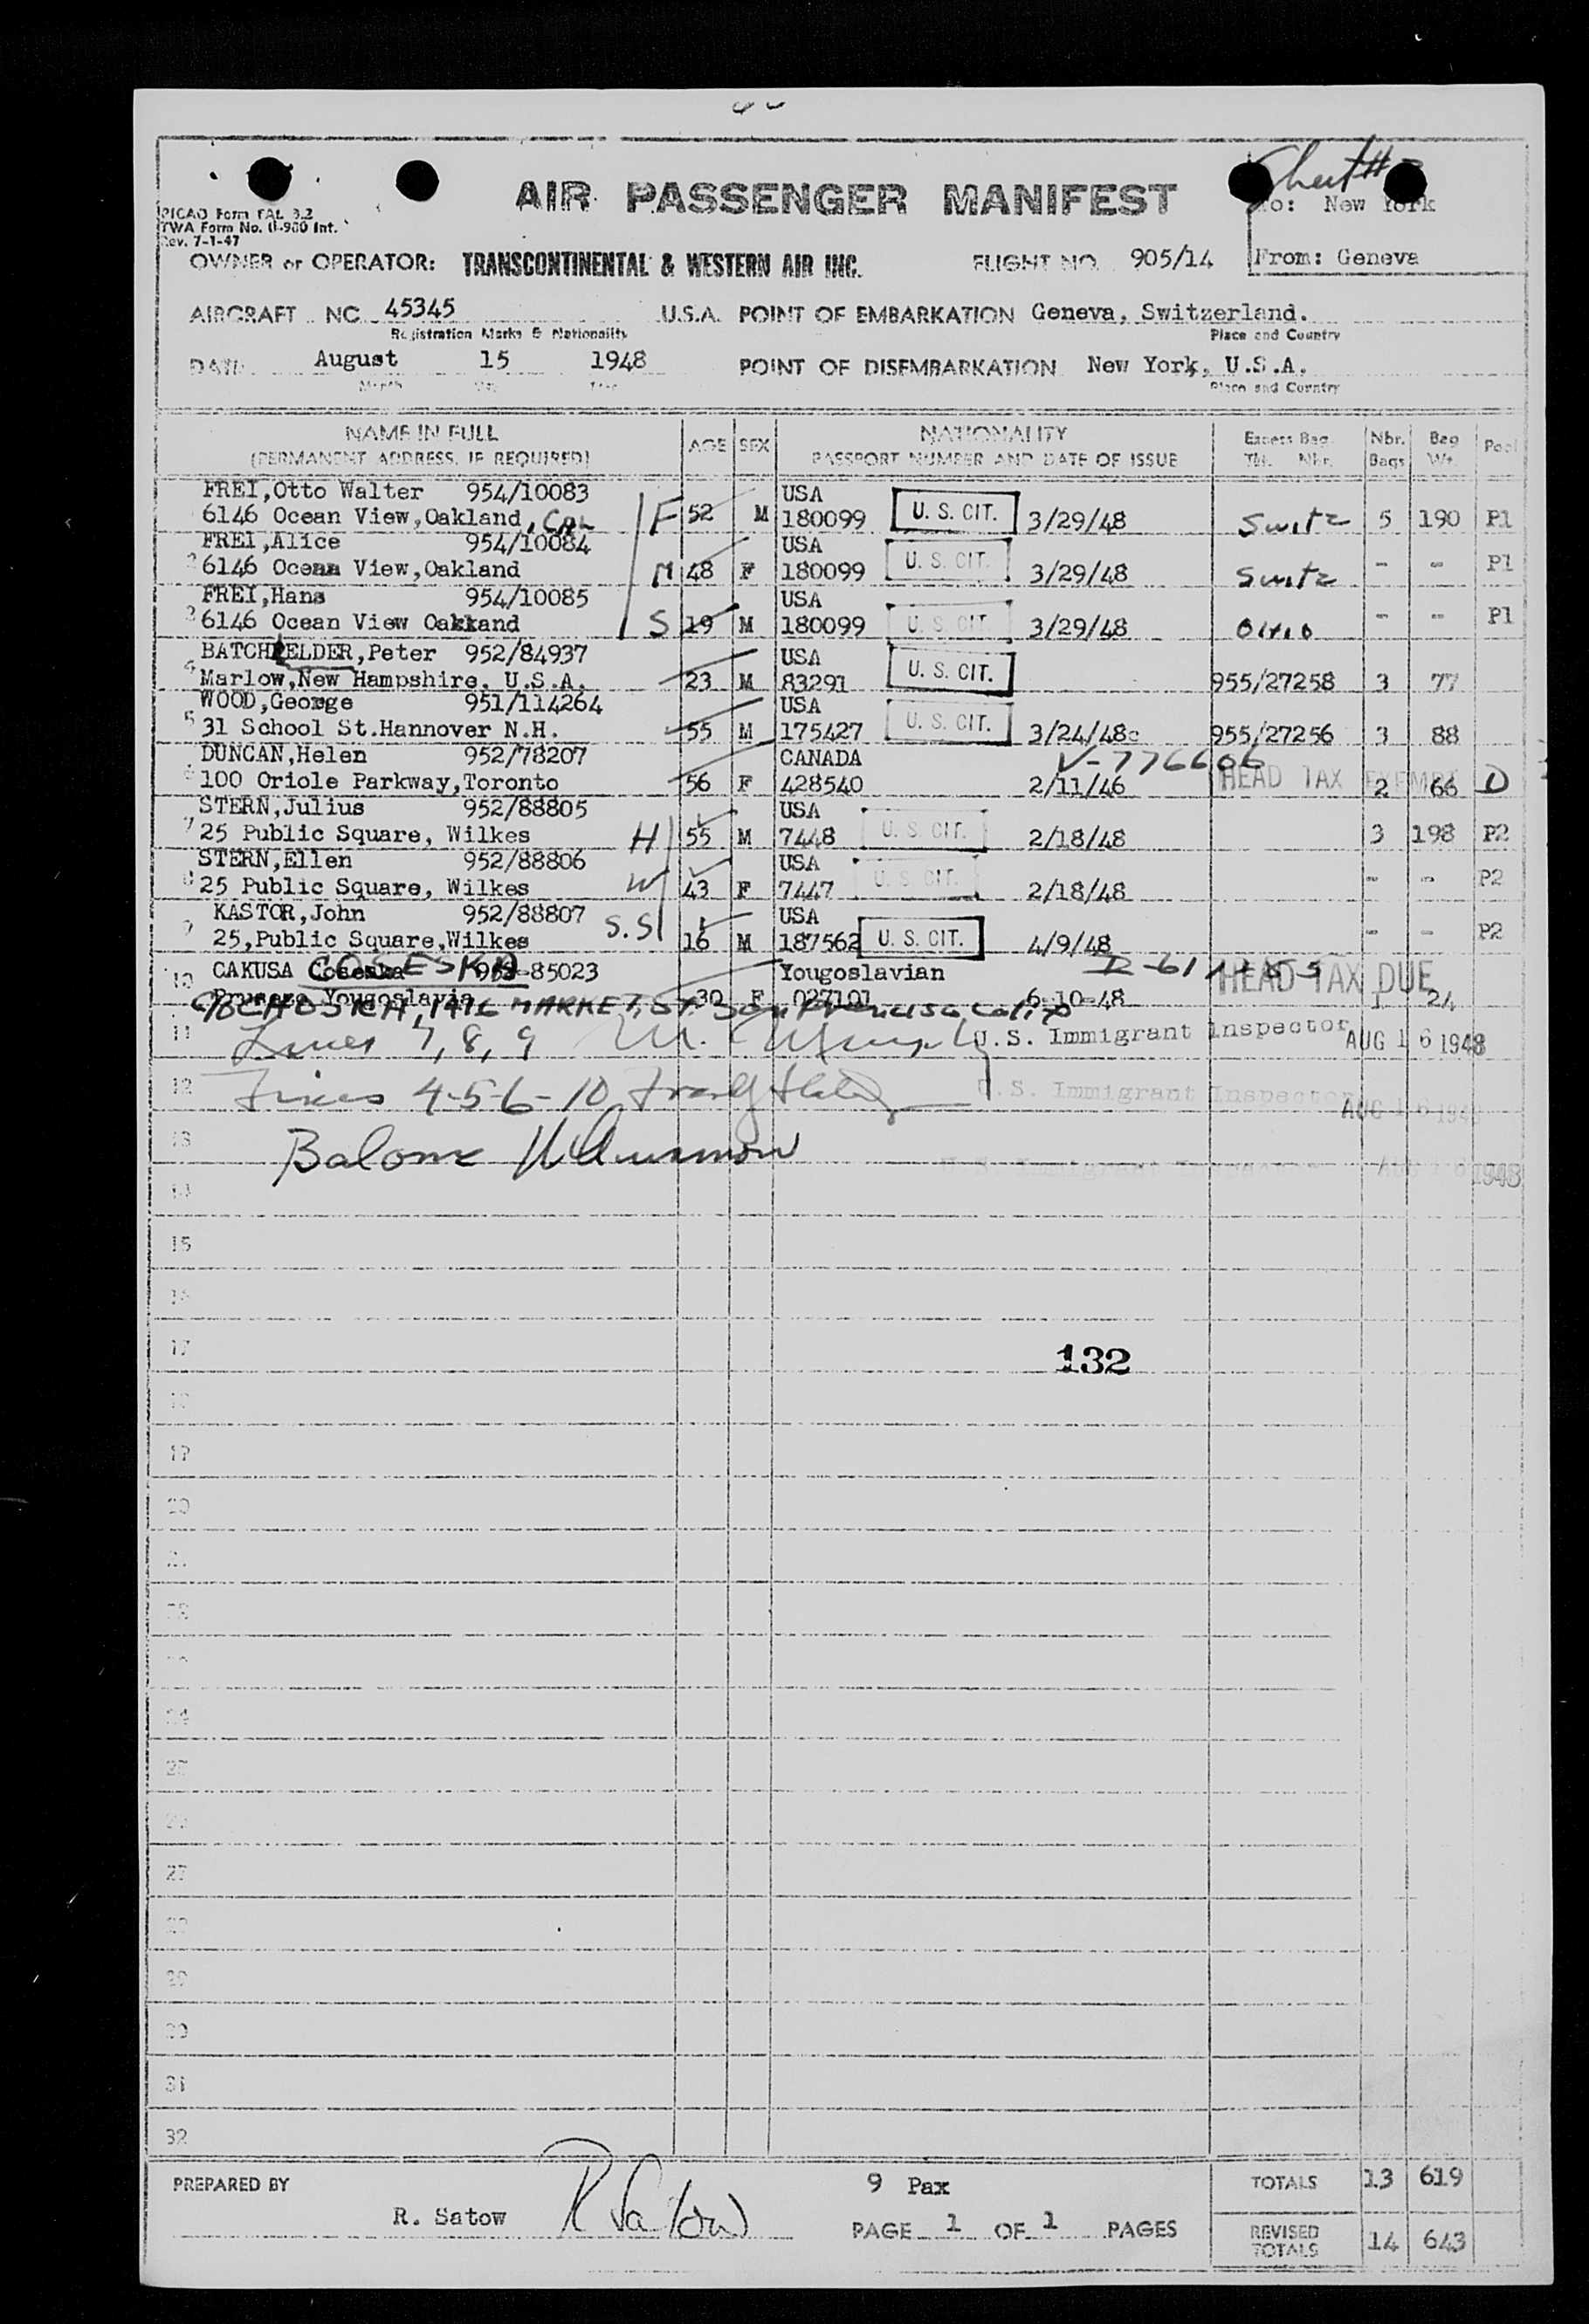 Sheet #
AIR PASSENGER MANIFEST
To: New York
PICAO Form FAL 3.2
TWA Form No. 0-980 Int.
Rev. 7-1-47
OWNER or OPERATOR: TRANSCONTINENTAL & WESTERN AIR INC. FLIGHT NO. 905/14 From: Geneva
AIRCRAFT NC 45345 U.S.A. POINT OF EMBARKATION Geneva, Switzerland.
Registration Marks & Nationality Place and Country
DATE August 15 1948 POINT OF DISEMBARKATION New York, U.S.A.
Month Day Year Place and Country
NAME IN FULL AGE SEX NATIONALITY Excess Bag. Nbr. Bag Pool
(PERMANENT ADDRESS, IF REQUIRED) PASSPORT NUMBER AND DATE OF ISSUE Tkt. Nbr. Bags Wt.
FREI,Otto Walter 954/10083 USA
6146 Ocean View,Oakland, CAL F 52 M 180099 U. S. CIT. 3/29/48 Switz 5 190 P1
FREI,Alice 954/10084 USA
2 6146 Ocean View,Oakland M 48 F 180099 U. S. CIT. 3/29/48 Switz - - P1
FREI,Hans 954/10085 USA
3 6146 Ocean View Oakkand S 19 M 180099 U. S. CIT. 3/29/48 Ohio - - P1
BATCHELDER,Peter 952/84937 USA
4 Marlow,New Hampshire. U.S.A. 23 M 83291 U. S. CIT. 955/27258 3 77
WOOD,George 951/114264 USA
5 31 School St.Hannover N.H. 55 M 175427 U. S. CIT. 3/24/48c 955/27256 3 88
DUNCAN,Helen 952/78207 CANADA V-776606
6 100 Oriole Parkway,Toronto 56 F 428540 2/11/46 HEAD TAX EXEMPT 2 66 D
STERN,Julius 952/88805 USA
7 25 Public Square, Wilkes H 55 M 7448 U. S. CIT. 2/18/48 3 198 P2
STERN,Ellen 952/88806 USA
8 25 Public Square, Wilkes W 43 F 7447 U. S. CIT. 2/18/48 - - P2
KASTOR,John 952/88807 USA
9 25,Public Square,Wilkes S.S 16 M 187562 U. S. CIT. 4/9/48 - - P2
COSESKA
10 CAKUSA Coseska 952-85023 Yougoslavian HEAD TAX DUE
Yougoslavia 30 F 027101 6-10-48 1 24
1416 MARKET, ST. San Francisco, Calif
11 Lines 7, 8, 9 U.S. Immigrant Inspector AUG 16 1948
12 Lines 4-5-6-10 U.S. Immigrant Inspector AUG 16 1948
13 U.S. Immigrant Inspector AUG 16 1948
14
15
16
17 132
18
19
20
21
22
23
24
25
26
27
28
29
30
31
32
PREPARED BY 9 Pax TOTALS 13 619
R. Satow R Satow PAGE 1 OF 1 PAGES REVISED TOTALS 14 643